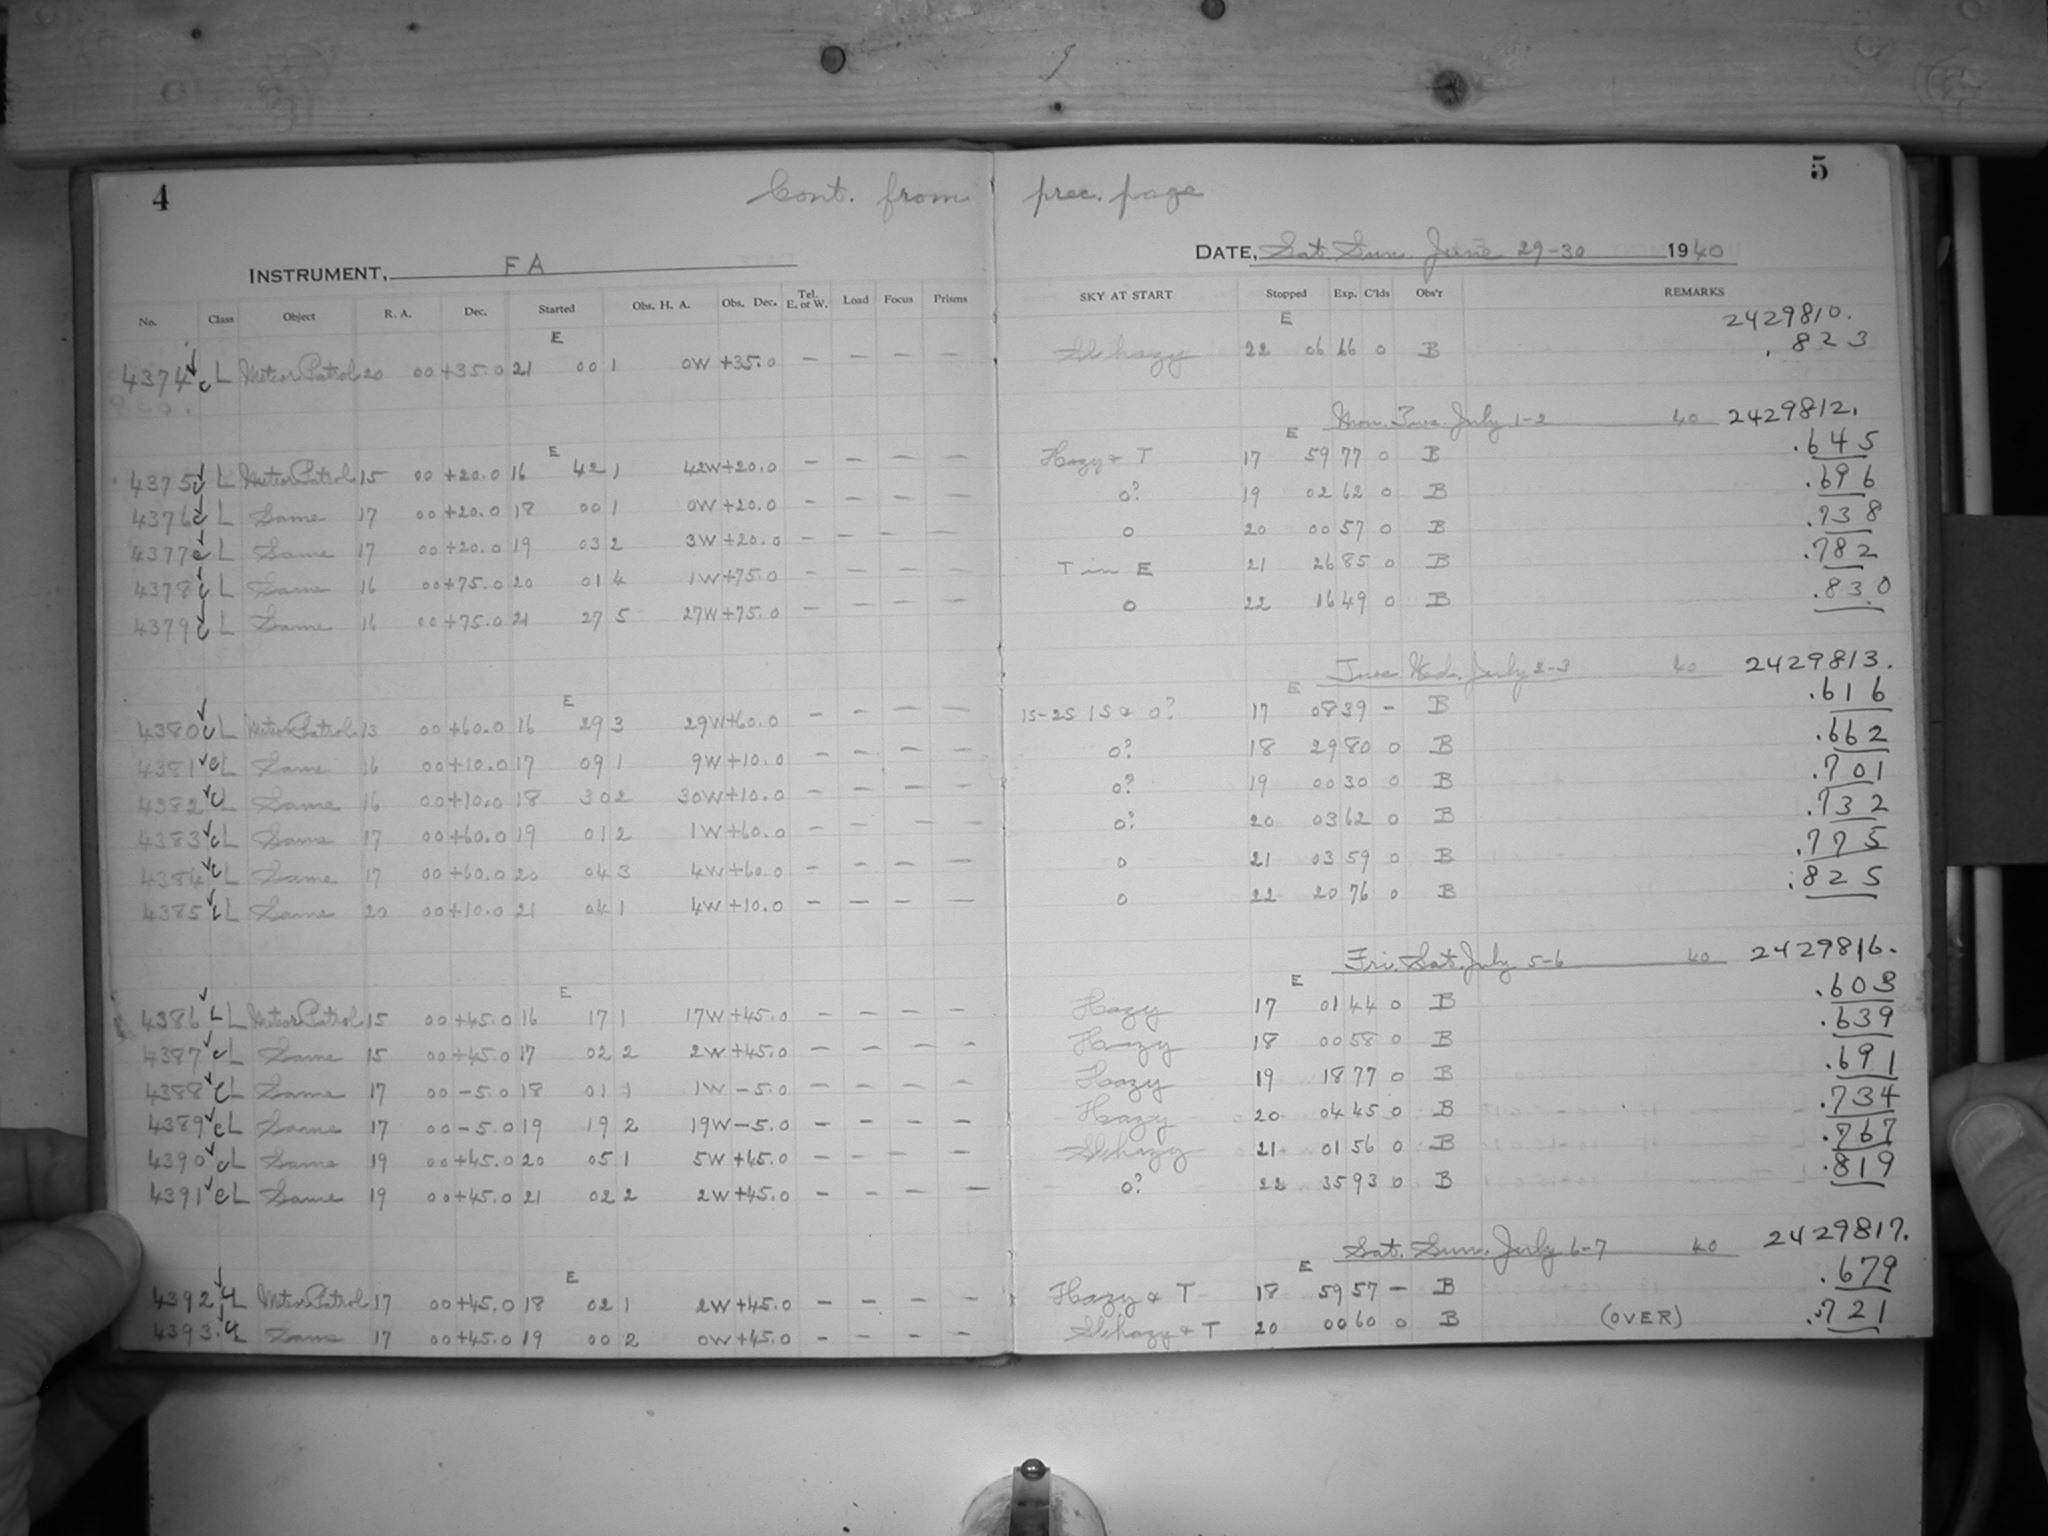 4
Cont. from prec. page
5
INSTRUMENT, FA
DATE, Sat. Sun. June 29-30 1940
No. Class Object R. A. Dec. Started Obs. H. A. Obs. Dec. Tel. E. or W. Load Focus Prisms SKY AT START Stopped Exp. C'lds Obs'r REMARKS
2429810.
E E
4374 ✓ c L Meteor Patrol 20 00 +35.0 21 00 1 0W +35.0 — — — — Sl. hazy 22 06 66 0 B .823
Mon. Tues. July 1-2 40 2429812.
E E
4375 ✓ c L Meteor Patrol 15 00 +20.0 16 42 1 42W +20.0 — — — — Hazy & T 17 59 77 0 B .645
4376 ✓ c L Same 17 00 +20.0 18 00 1 0W +20.0 — — — — 0? 19 02 62 0 B .696
4377 ✓ c L Same 17 00 +20.0 19 03 2 3W +20.0 — — — — 0 20 00 57 0 B .738
4378 ✓ c L Same 16 00 +75.0 20 01 4 1W +75.0 — — — — T in E 21 26 85 0 B .782
4379 ✓ c L Same 16 00 +75.0 21 27 5 27W +75.0 — — — — 0 22 16 49 0 B .830
Tues. Wed. July 2-3 40 2429813.
E E
4380 ✓ c L Meteor Patrol 13 00 +60.0 16 29 3 29W +60.0 — — — — 15-25 1S & 0? 17 08 39 - B .616
4381 ✓ c L Same 16 00 +10.0 17 09 1 9W +10.0 — — — — 0? 18 29 80 0 B .662
4382 ✓ c L Same 16 00 +10.0 18 30 2 30W +10.0 — — — — 0? 19 00 30 0 B .701
4383 ✓ c L Same 17 00 +60.0 19 01 2 1W +60.0 — — — — 0? 20 03 62 0 B .732
4384 ✓ c L Same 17 00 +60.0 20 04 3 4W +60.0 — — — — 0 21 03 59 0 B .775
4385 ✓ c L Same 20 00 +10.0 21 04 1 4W +10.0 — — — — 0 22 20 76 0 B .825
Fri. Sat. July 5-6 40 2429816.
E E
4386 ✓ c L Meteor Patrol 15 00 +45.0 16 17 1 17W +45.0 — — — — Hazy 17 01 44 0 B .603
4387 ✓ c L Same 15 00 +45.0 17 02 2 2W +45.0 — — — — Hazy 18 00 58 0 B .639
4388 ✓ c L Same 17 00 -5.0 18 01 1 1W -5.0 — — — — Hazy 19 18 77 0 B .691
4389 ✓ c L Same 17 00 -5.0 19 19 2 19W -5.0 — — — — Hazy 20 04 45 0 B .734
4390 ✓ c L Same 19 00 +45.0 20 05 1 5W +45.0 — — — — Sl. hazy 21 01 56 0 B .767
4391 ✓ c L Same 19 00 +45.0 21 02 2 2W +45.0 — — — — 0? 22 35 93 0 B .819
Sat. Sun. July 6-7 40 2429817.
E E
4392 ✓ c L Meteor Patrol 17 00 +45.0 18 02 1 2W +45.0 — — — — Hazy & T 18 59 57 - B .679
4393 ✓ c L Same 17 00 +45.0 19 00 2 0W +45.0 — — — — Sl. hazy & T 20 00 60 0 B (OVER) .721